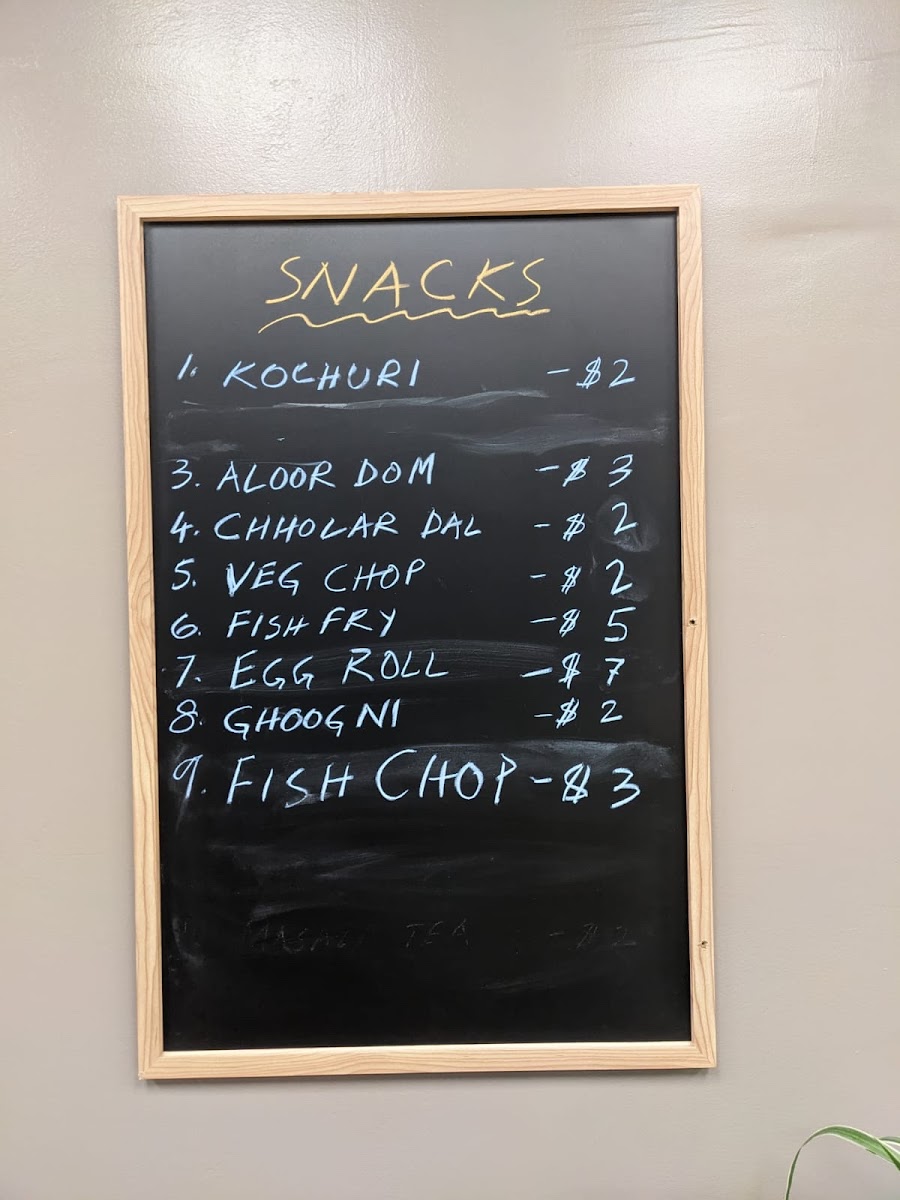 SNACKS
1. KOCHURI - $2
3. ALOOR DOM - $3
4. CHHOLAR DAL - $2
5. VEG CHOP - $2
6. FISH FRY - $5
7. EGG ROLL - $7
8. GHOOGNI - $2
9. FISH CHOP - $3
TEA - $2